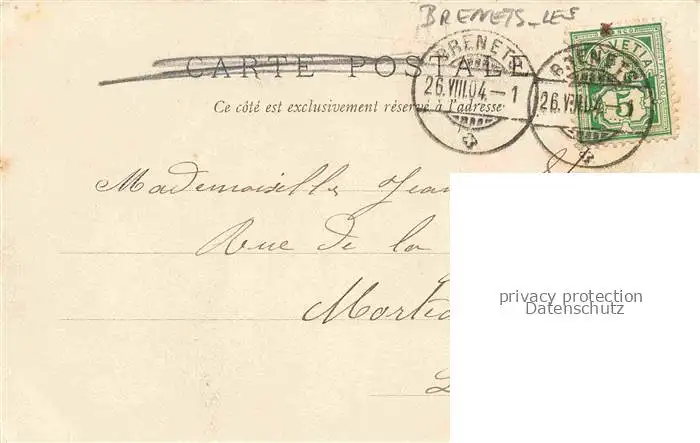 BRENETS_LES
CARTE POSTALE
BRENETS
26.VIII.04.–1
BRENETS
26.VIII.04.–
HELVETIA
FRANCO
5
Ce côté est exclusivement réservé à l'adresse
Mademoiselle Jean
Rue de la
privacy protection
Datenschutz